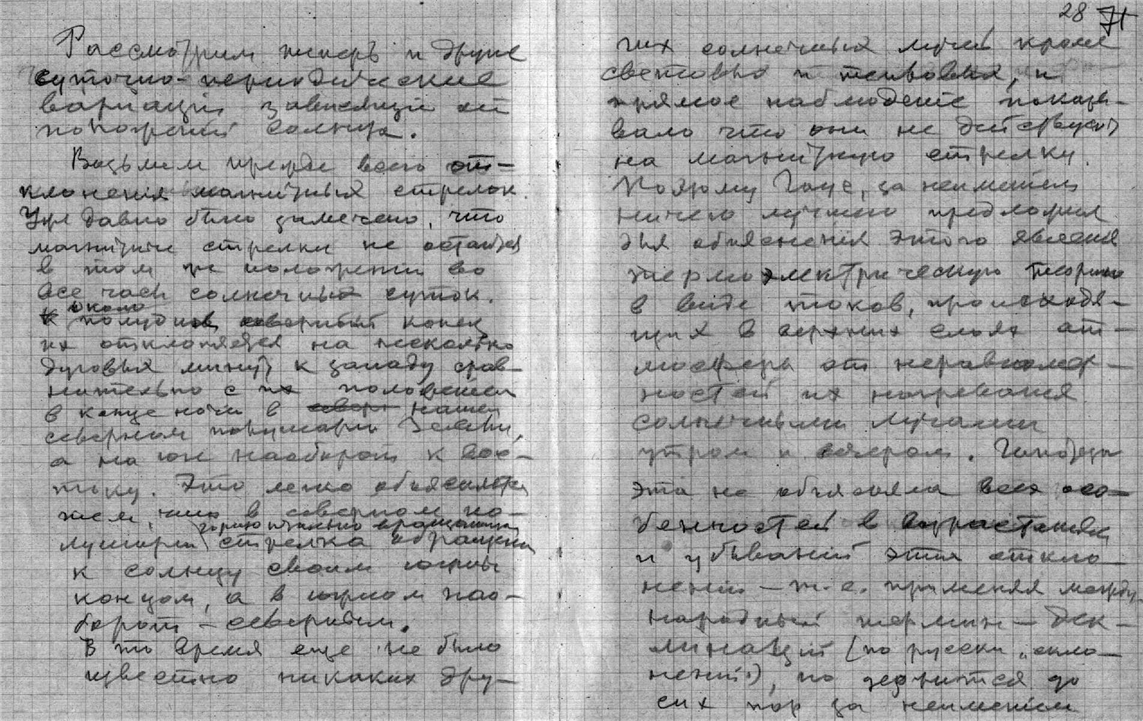 Рассмотрим теперь и другие
суточно-периодические
вариации, зависящие от
положений солнца.
Возьмем прежде всего от-
клонения магнитных стрелок.
Уже давно было замечено, что
магнитные стрелки не остаются
в том же положении во
все часы солнечных суток.
около
полудня северный конец
их отклоняется на несколько
дуговых минут к западу срав-
нительно с их положением
в конце ночи в нашем
северном полушарии Земли,
а на юге наоборот к вос-
току. Это легко объяснялось
тем, что в северном по-
горизонтально вращающаяся
лушарии стрелка обращена
к солнцу своим южным
концом, а в южном нао-
борот – северным.
В то время еще не было
известно никаких дру-
28 71
гих солнечных лучей кроме
световых и тепловых, и
прямое наблюдение показы-
вало что они не действуют
на магнитную стрелку.
Поэтому Гаус, за неимением
ничего лучшего предложил
для объяснения этого явления
термоэлектрическую теорию
в виде токов, происходя-
щих в верхних слоях ат-
мосферы от неравномер-
ностей их нагревания
солнечными лучами
утром и вечером. Гипотеза
эта не объясняла всех осо-
бенностей в возрастании
и убывании этих откло-
нений – т.е. применяя между-
народный термин – дек-
линаций (по русски „скло-
нений"), но держится до
сих пор за неимением